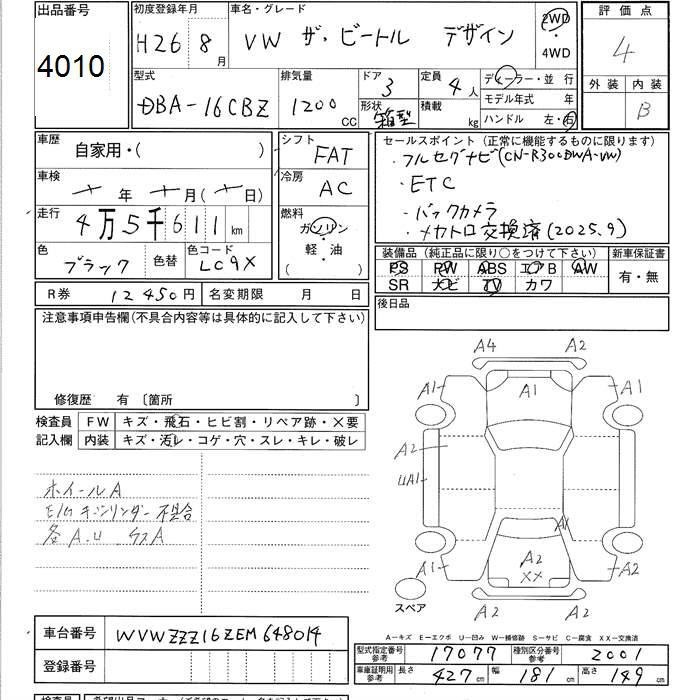 出品番号
4010
初度登録年月
H26 8月
車名・グレード
VW ザ・ビートル デザイン
2WD
・
4WD
評価点
4
外装 内装
B
型式
DBA-16CBZ
排気量
1200 CC
ドア
3
形状
箱型
定員
4人
積載
kg
ディーラー・並行
モデル年式 年
ハンドル 左・右
車歴
自家用・( )
車検
年 月( 日)
走行
4万5千611km
色
ブラック
色替
色コード
LC9X
シフト
FAT
冷房
AC
燃料
ガソリン
・
軽・油
( )
セールスポイント(正常に機能するものに限ります)
・フルセグナビ(CN-R300DWA-VW)
・ETC
・バックカメラ
・メカトロ交換済(2025.9)
装備品(純正品に限り○をつけて下さい)
PS PW ABS エアB AW
SR ナビ TV カワ
新車保証書
有・無
R券 12450円
名変期限 月 日
後日品
注意事項申告欄(不具合内容等は具体的に記入して下さい)
修復歴 有〔箇所 〕
検査員
記入欄
FW キズ・飛石・ヒビ割・リペア跡・×要
内装 キズ・汚レ・コゲ・穴・スレ・キレ・破レ
ホイールA
不具合
各A.U
A4 A2
A1 A1 A1
A2
UA1
A1
A1 A2 A2
XX
A2 A2
スペア
A-キズ E-エクボ U-凹み W-補修跡 S-サビ C-腐食 XX-交換済
車台番号 WVWZZZ16ZEM648014
登録番号
型式指定番号
参考
17077
種別区分番号
参考
2001
車庫証明用
参考
長さ 427cm 幅 181cm 高さ 149cm